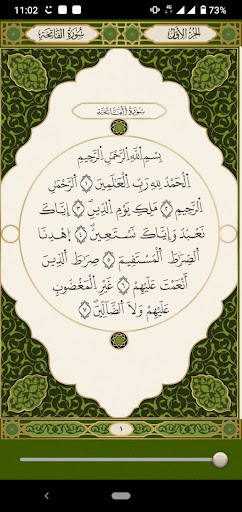 11:02 73%
الجزء الأول سُورَةُ الفَاتِحَةِ
سُورَةُ الْفَاتِحَةِ
بِسْمِ اللَّهِ الرَّحْمَٰنِ الرَّحِيمِ
الْحَمْدُ لِلَّهِ رَبِّ الْعَالَمِينَ ١ الرَّحْمَٰنِ
الرَّحِيمِ ٢ مَلِكِ يَوْمِ الدِّينِ ٣ إِيَّاكَ
نَعْبُدُ وَإِيَّاكَ نَسْتَعِينُ ٤ اهْدِنَا
الصِّرَاطَ الْمُسْتَقِيمَ ٥ صِرَاطَ الَّذِينَ
أَنْعَمْتَ عَلَيْهِمْ ٦ غَيْرِ الْمَغْضُوبِ
عَلَيْهِمْ وَلَا الضَّالِّينَ ٧
١